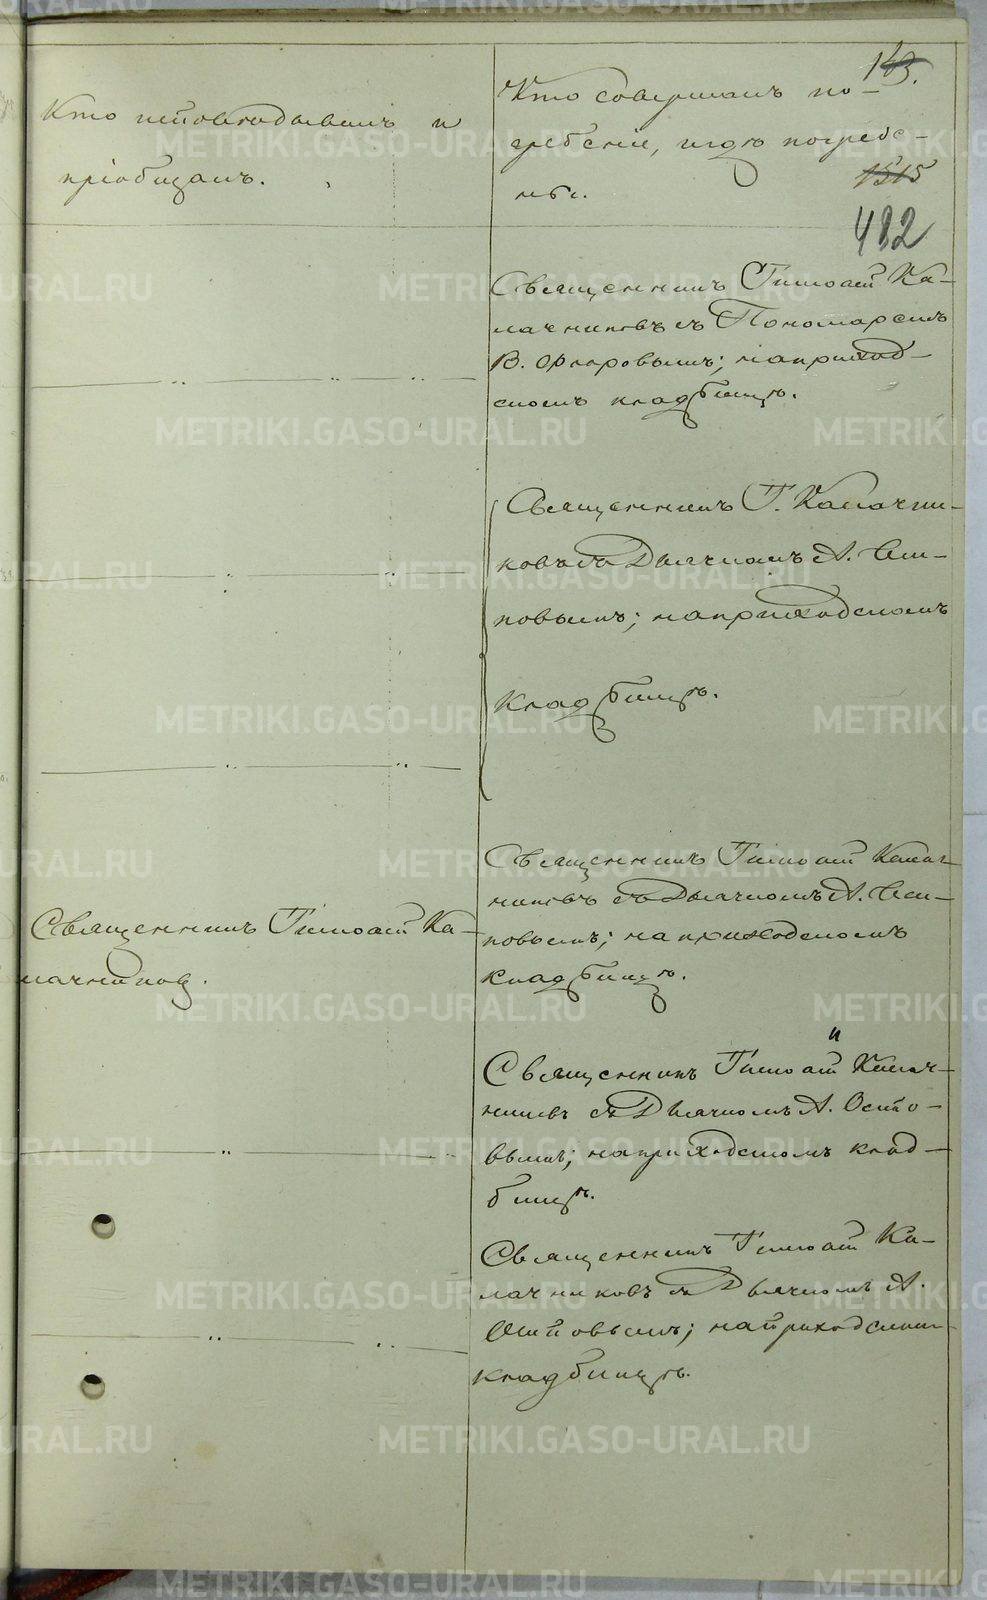 143.
Кто исповѣдывалъ и
пріобщалъ.
Кто совершалъ по-
гребеніе, и гдѣ погребе-
ны.
1515
482
Священникъ Тимоѳей Ка-
лачниковъ съ Пономаремъ
В. Флоровымъ; на приход-
скомъ кладбищѣ.
Священникъ Т. Калачни-
ковъ съ Дьячкомъ А. Оси-
повымъ; на приходскомъ
кладбищѣ.
Священникъ Тимоѳей Ка-
лачников.
Священникъ Тимоѳей Калач-
никовъ съ Дьячкомъ А. Оси-
повымъ; на приходскомъ
кладбищѣ.
Священникъ Тимоѳей Калач-
никовъ съ Дьячкомъ А. Осипо-
вымъ; на приходскомъ клад-
бищѣ.
Священникъ Тимоѳей Ка-
лачниковъ съ Дьячкомъ А.
Осиповымъ; на приходскомъ
кладбищѣ.
METRIKI.GASO-URAL.RU